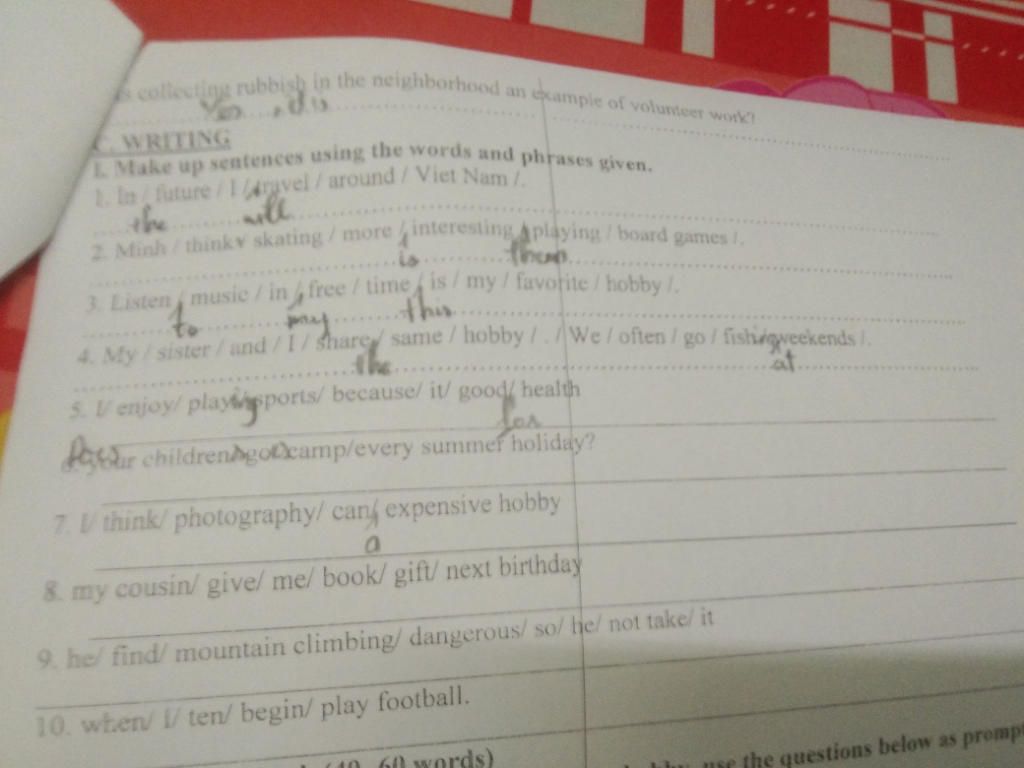 is collecting rubbish in the neighborhood an example of volunteer work?
Yes, it is
C. WRITING
I. Make up sentences using the words and phrases given.
1. In / future / I / travel / around / Viet Nam /.
the will
2. Minh / think / skating / more / interesting / playing / board games /.
is than
3. Listen / music / in / free / time / is / my / favorite / hobby /.
to my this
4. My / sister / and / I / share / same / hobby / . / We / often / go / fishing weekends /.
the at
5. I/ enjoy/ playing sports/ because/ it/ good/ health
for
your children go camp/every summer holiday?
7. I/ think/ photography/ can/ expensive hobby
a
8. my cousin/ give/ me/ book/ gift/ next birthday
9. he/ find/ mountain climbing/ dangerous/ so/ he/ not take/ it
10. when/ I/ ten/ begin/ play football.
(40 60 words)
use the questions below as